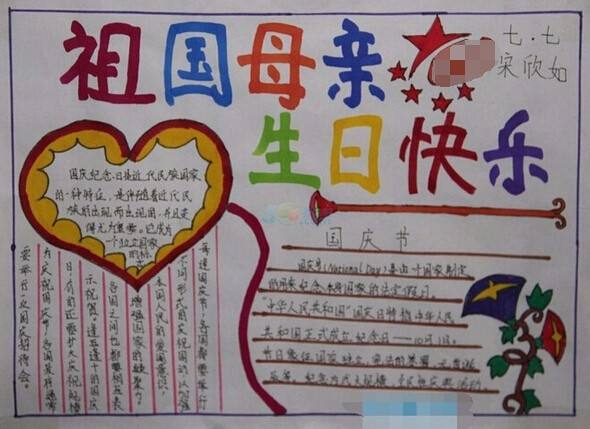 祖国母亲
生日快乐
七.七
宋欣如
国庆纪念日是近代民族国家
的一种特征，是伴随着近代民
族的出现而出现的，并且变
得尤为重要。它成为
一个独立国家
的标
志
每逢国庆节，各国都要举行
不同形式的庆祝活动，以加强
本国人民的爱国意识，
增强国家的凝聚力。
各国之间也都要相互表
示祝贺。逢五逢十的国庆
日，有的还要扩大庆祝规模
为庆祝国庆节，各国政府通常
要举行一次国庆招待会。
国庆节
国庆节(National Day)是由一个国家制定
的用来纪念本身国家的法定假日。
“中华人民共和国”国庆日特指中华人民
共和国正式成立纪念日——10月1日。